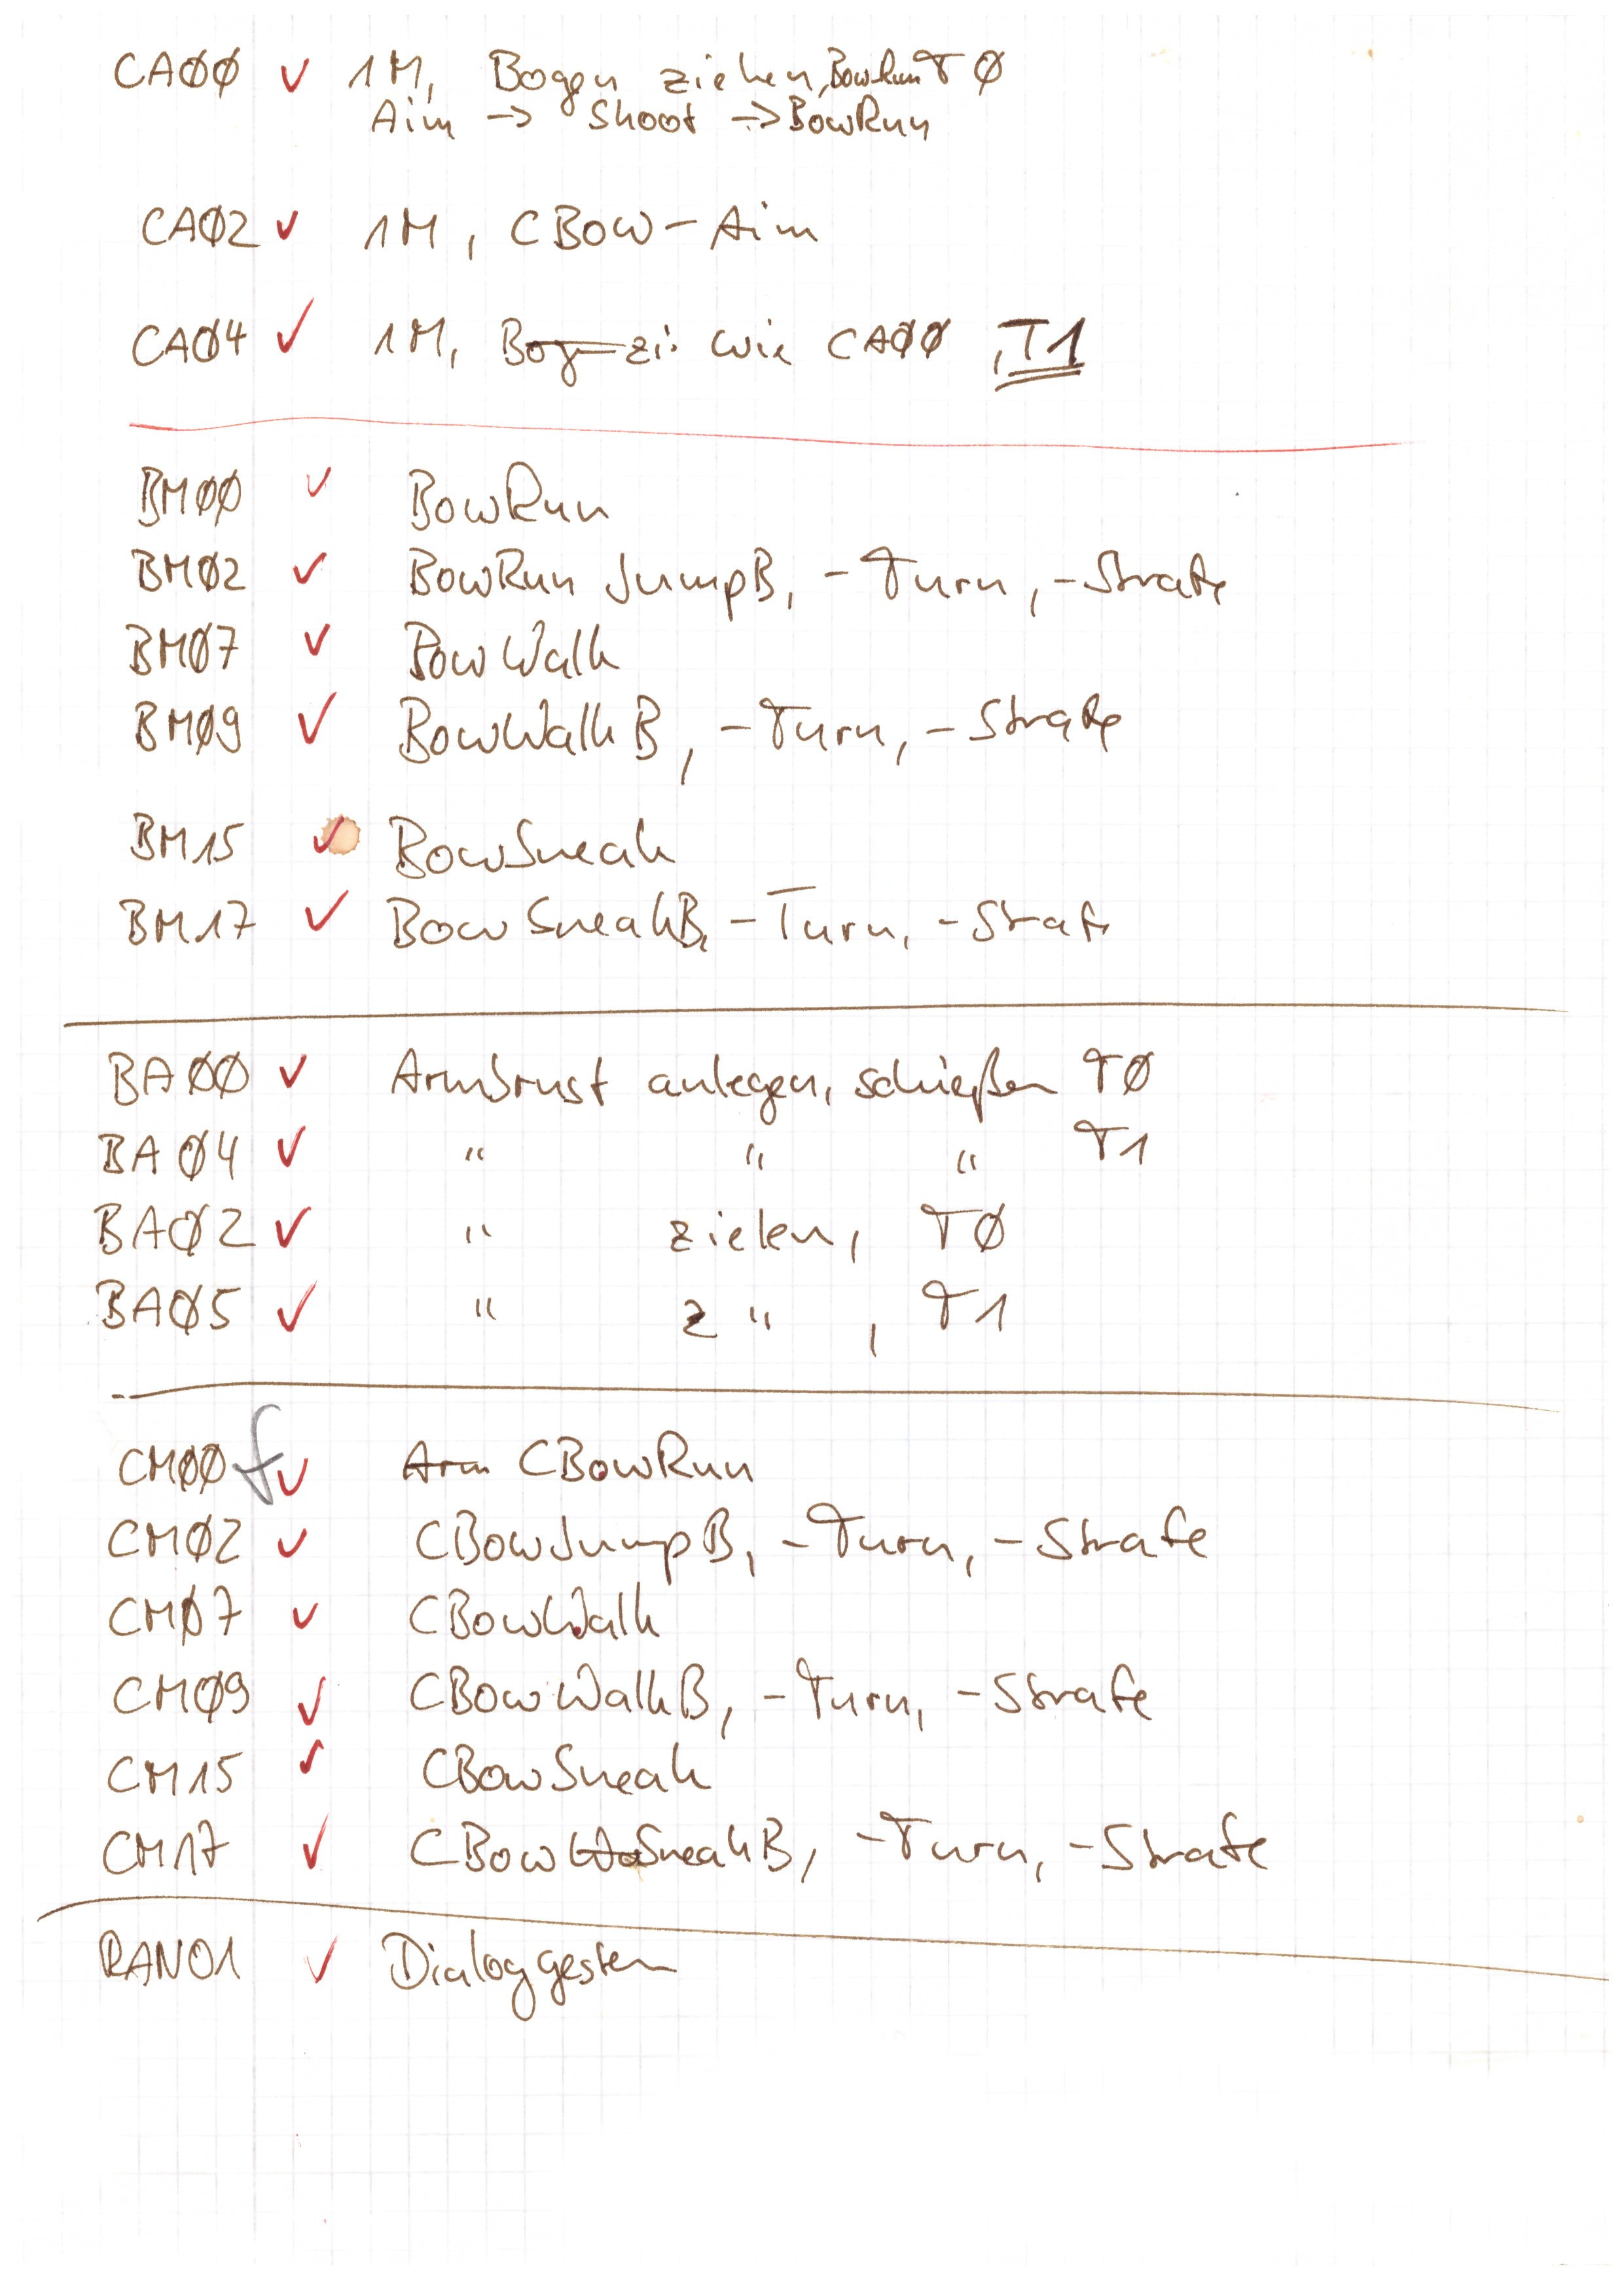 CAØØ ✓ 1M, Bogen ziehen, BowRun TØ
Aim -> Shoot -> BowRun
CAØ2 ✓ 1M, CBow-Aim
CAØ4 ✓ 1M, wie CAØØ, T1
BMØØ ✓ BowRun
BMØ2 ✓ BowRun JumpB, -Turn, -Strafe
BMØ7 ✓ BowWalk
BMØ9 ✓ BowWalkB, -Turn, -Strafe
BM15 ✓ BowSneak
BM17 ✓ BowSneakB, -Turn, -Strafe
BAØØ ✓ Armbrust anlegen, schießen TØ
BAØ4 ✓ " " " T1
BAØ2 ✓ " zielen, TØ
BAØ5 ✓ " z ", T1
CMØØ f ✓ Arm CBowRun
CMØ2 ✓ CBowJumpB, -Turn, -Strafe
CMØ7 ✓ CBowWalk
CMØ9 ✓ CBowWalkB, -Turn, -Strafe
CM15 ✓ CBowSneak
CM17 ✓ CBowSneakB, -Turn, -Strafe
RAN01 ✓ Dialoggesten